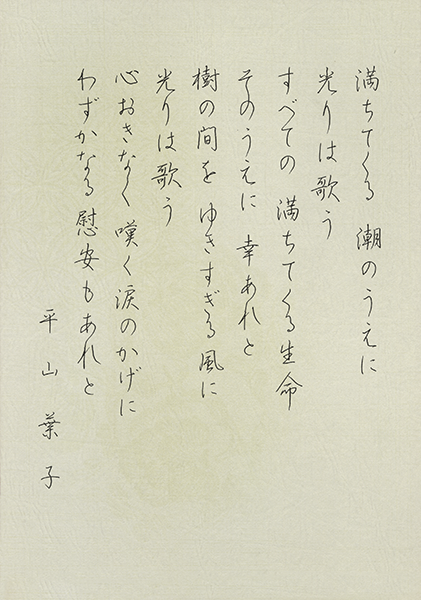 満ちてくる 潮のうえに
光りは歌う
すべての 満ちてくる生命
そのうえに 幸あれと
樹の間を ゆきすぎる風に
光りは歌う
心おきなく 嘆く涙のかげに
わずかなる 慰安もあれと
平山葉子